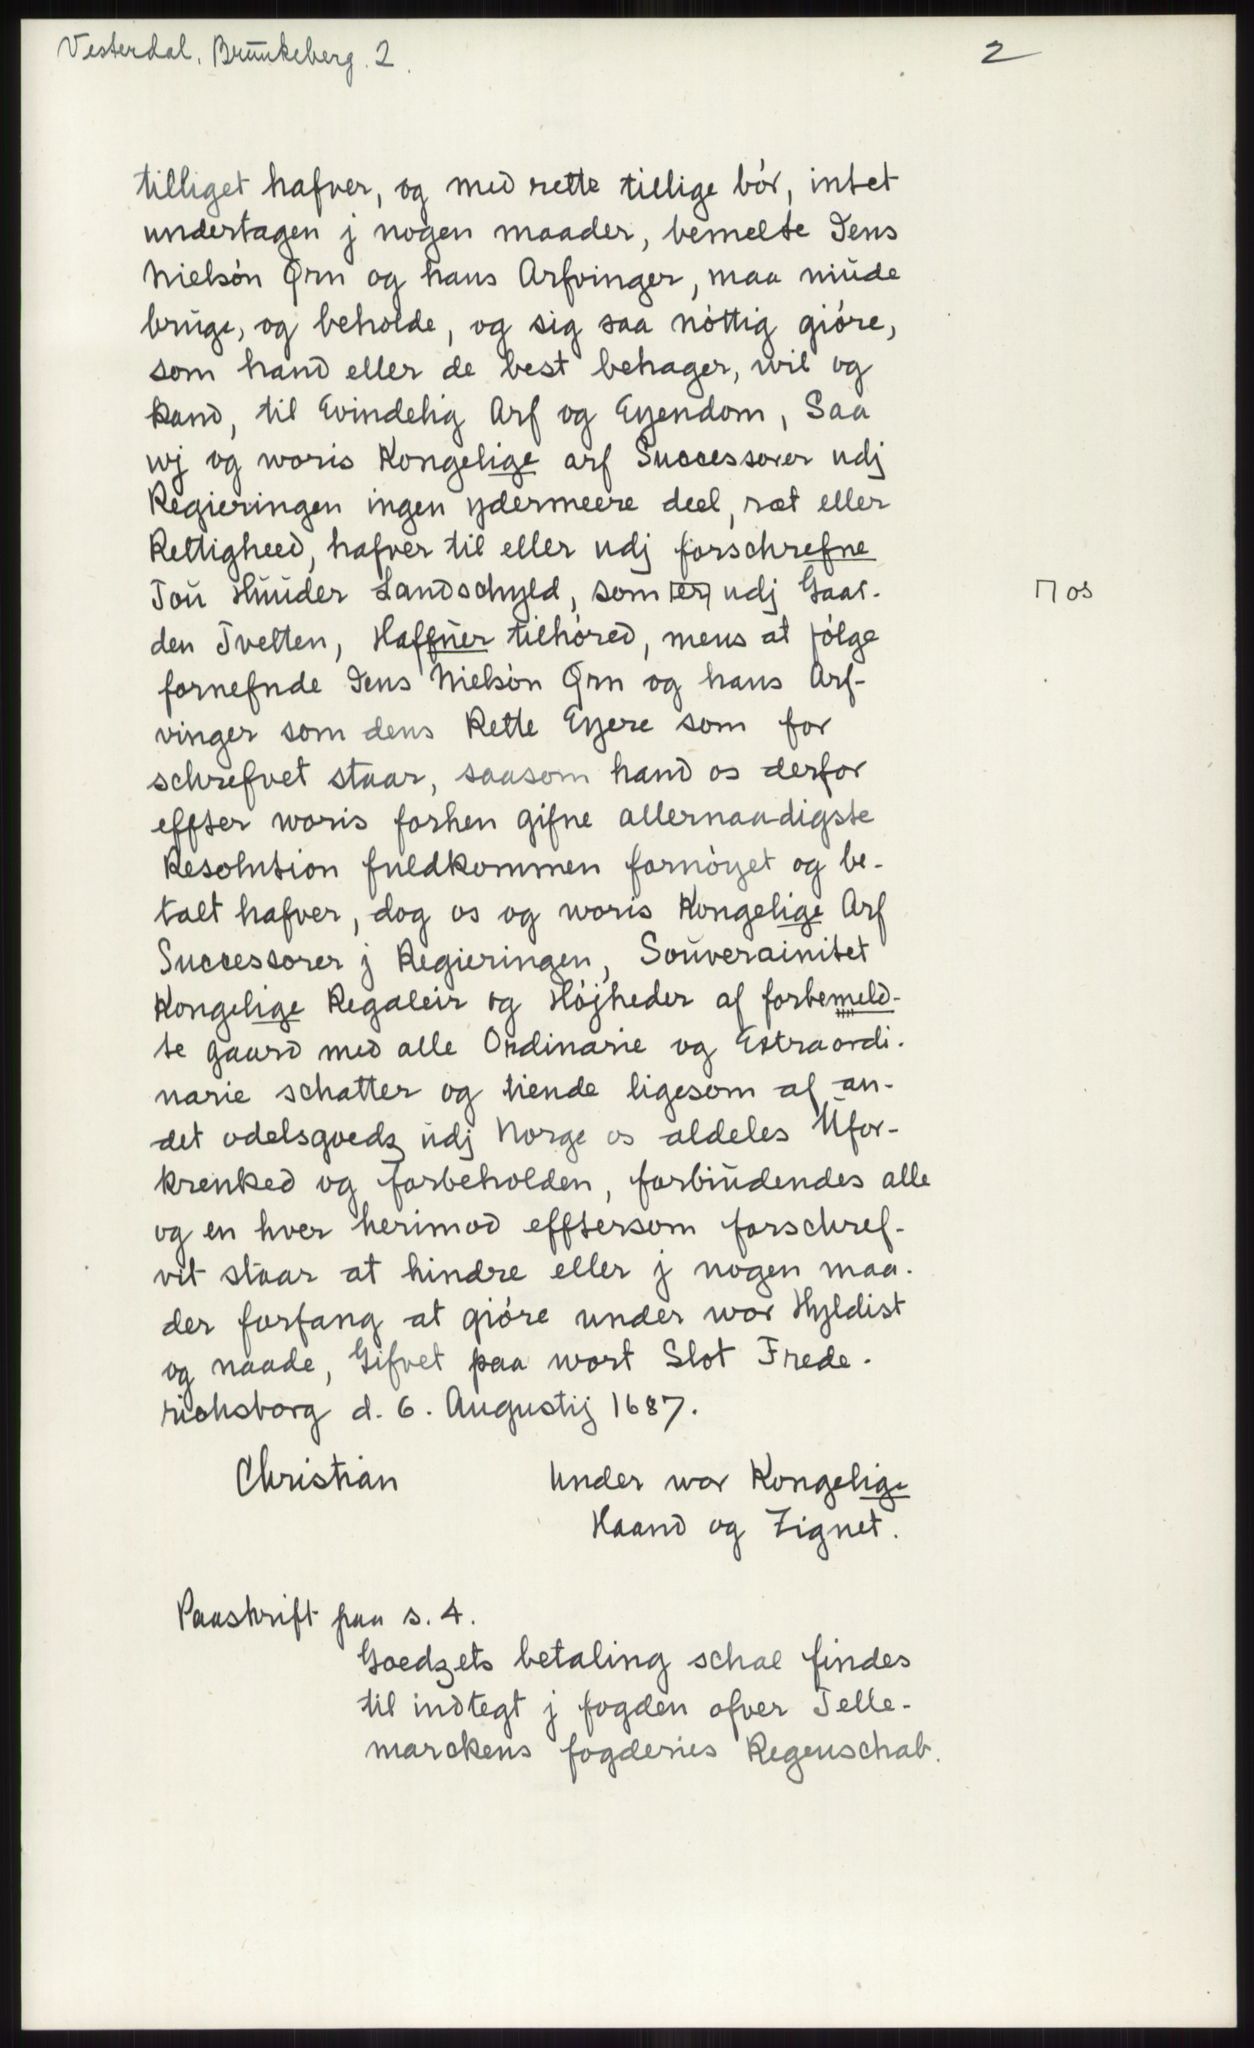 Vesterdal, Brūnkeberg. 2.
2
tilliget hafver, og med rette tillige bór, intet
undertagen j nogen maader, bemelte Jens
Nielsón Ǫrn og hans Arfvinger, maa niūde
brūge, og beholde, og sig saa nóttig gióre,
som hand eller de best behager, wil og
kand, til Evindelig Arf og Eyendom, Saa
wj og woris Kongelige arf Successorer udj
Regieringen ingen ydermeere deel, ræt eller
Rettigheed, hafver til eller udj forschrefne
Toū Hūūder Landschyld, som [er] udj Gaar-
⊓ os
den Tvetten, Haffūer tilhóred, mens at fólge
fornefnde Jens Nielsón Ǫrn og hans Arf-
vinger som dens Rette Eyere som for
schrefvet staar, saasom hand os derfor
effter woris forhen gifne allernaadigste
Resolution fuldkommen fornóyet og be-
talt hafver, dog os og woris Kongelige Arf
Successorer j Regieringen, Soūverainitet
Kongelige Regaleir og Hójheder af forbemeld-
te gaard med alle Ordinarie og Extraordi-
narie schatter og tiende ligesom af an-
det odelsgoedz ūdj Norge os aldeles Ūfor-
krenked og forbeholden, forbiūdendes alle
og en hver herimod efftersom forschref-
vit staar at hindre eller j nogen maa-
der forfang at gióre under wor Hyldist
og naade, Gifvet paa wort Slot Frede-
richsborg d. 6. Augustij 1687.
Christian
Under wor Kongelige
Haand og Zignet.
Paaskrift paa s. 4.
Goedzets betaling schal findes
til indtegt j fogden ofver Telle-
marckens fogderies Regenschab.